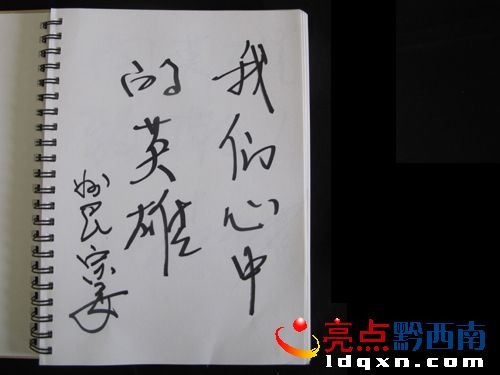 我们心中
的英雄
州民宗委
亮点黔西南
ldqxn.com